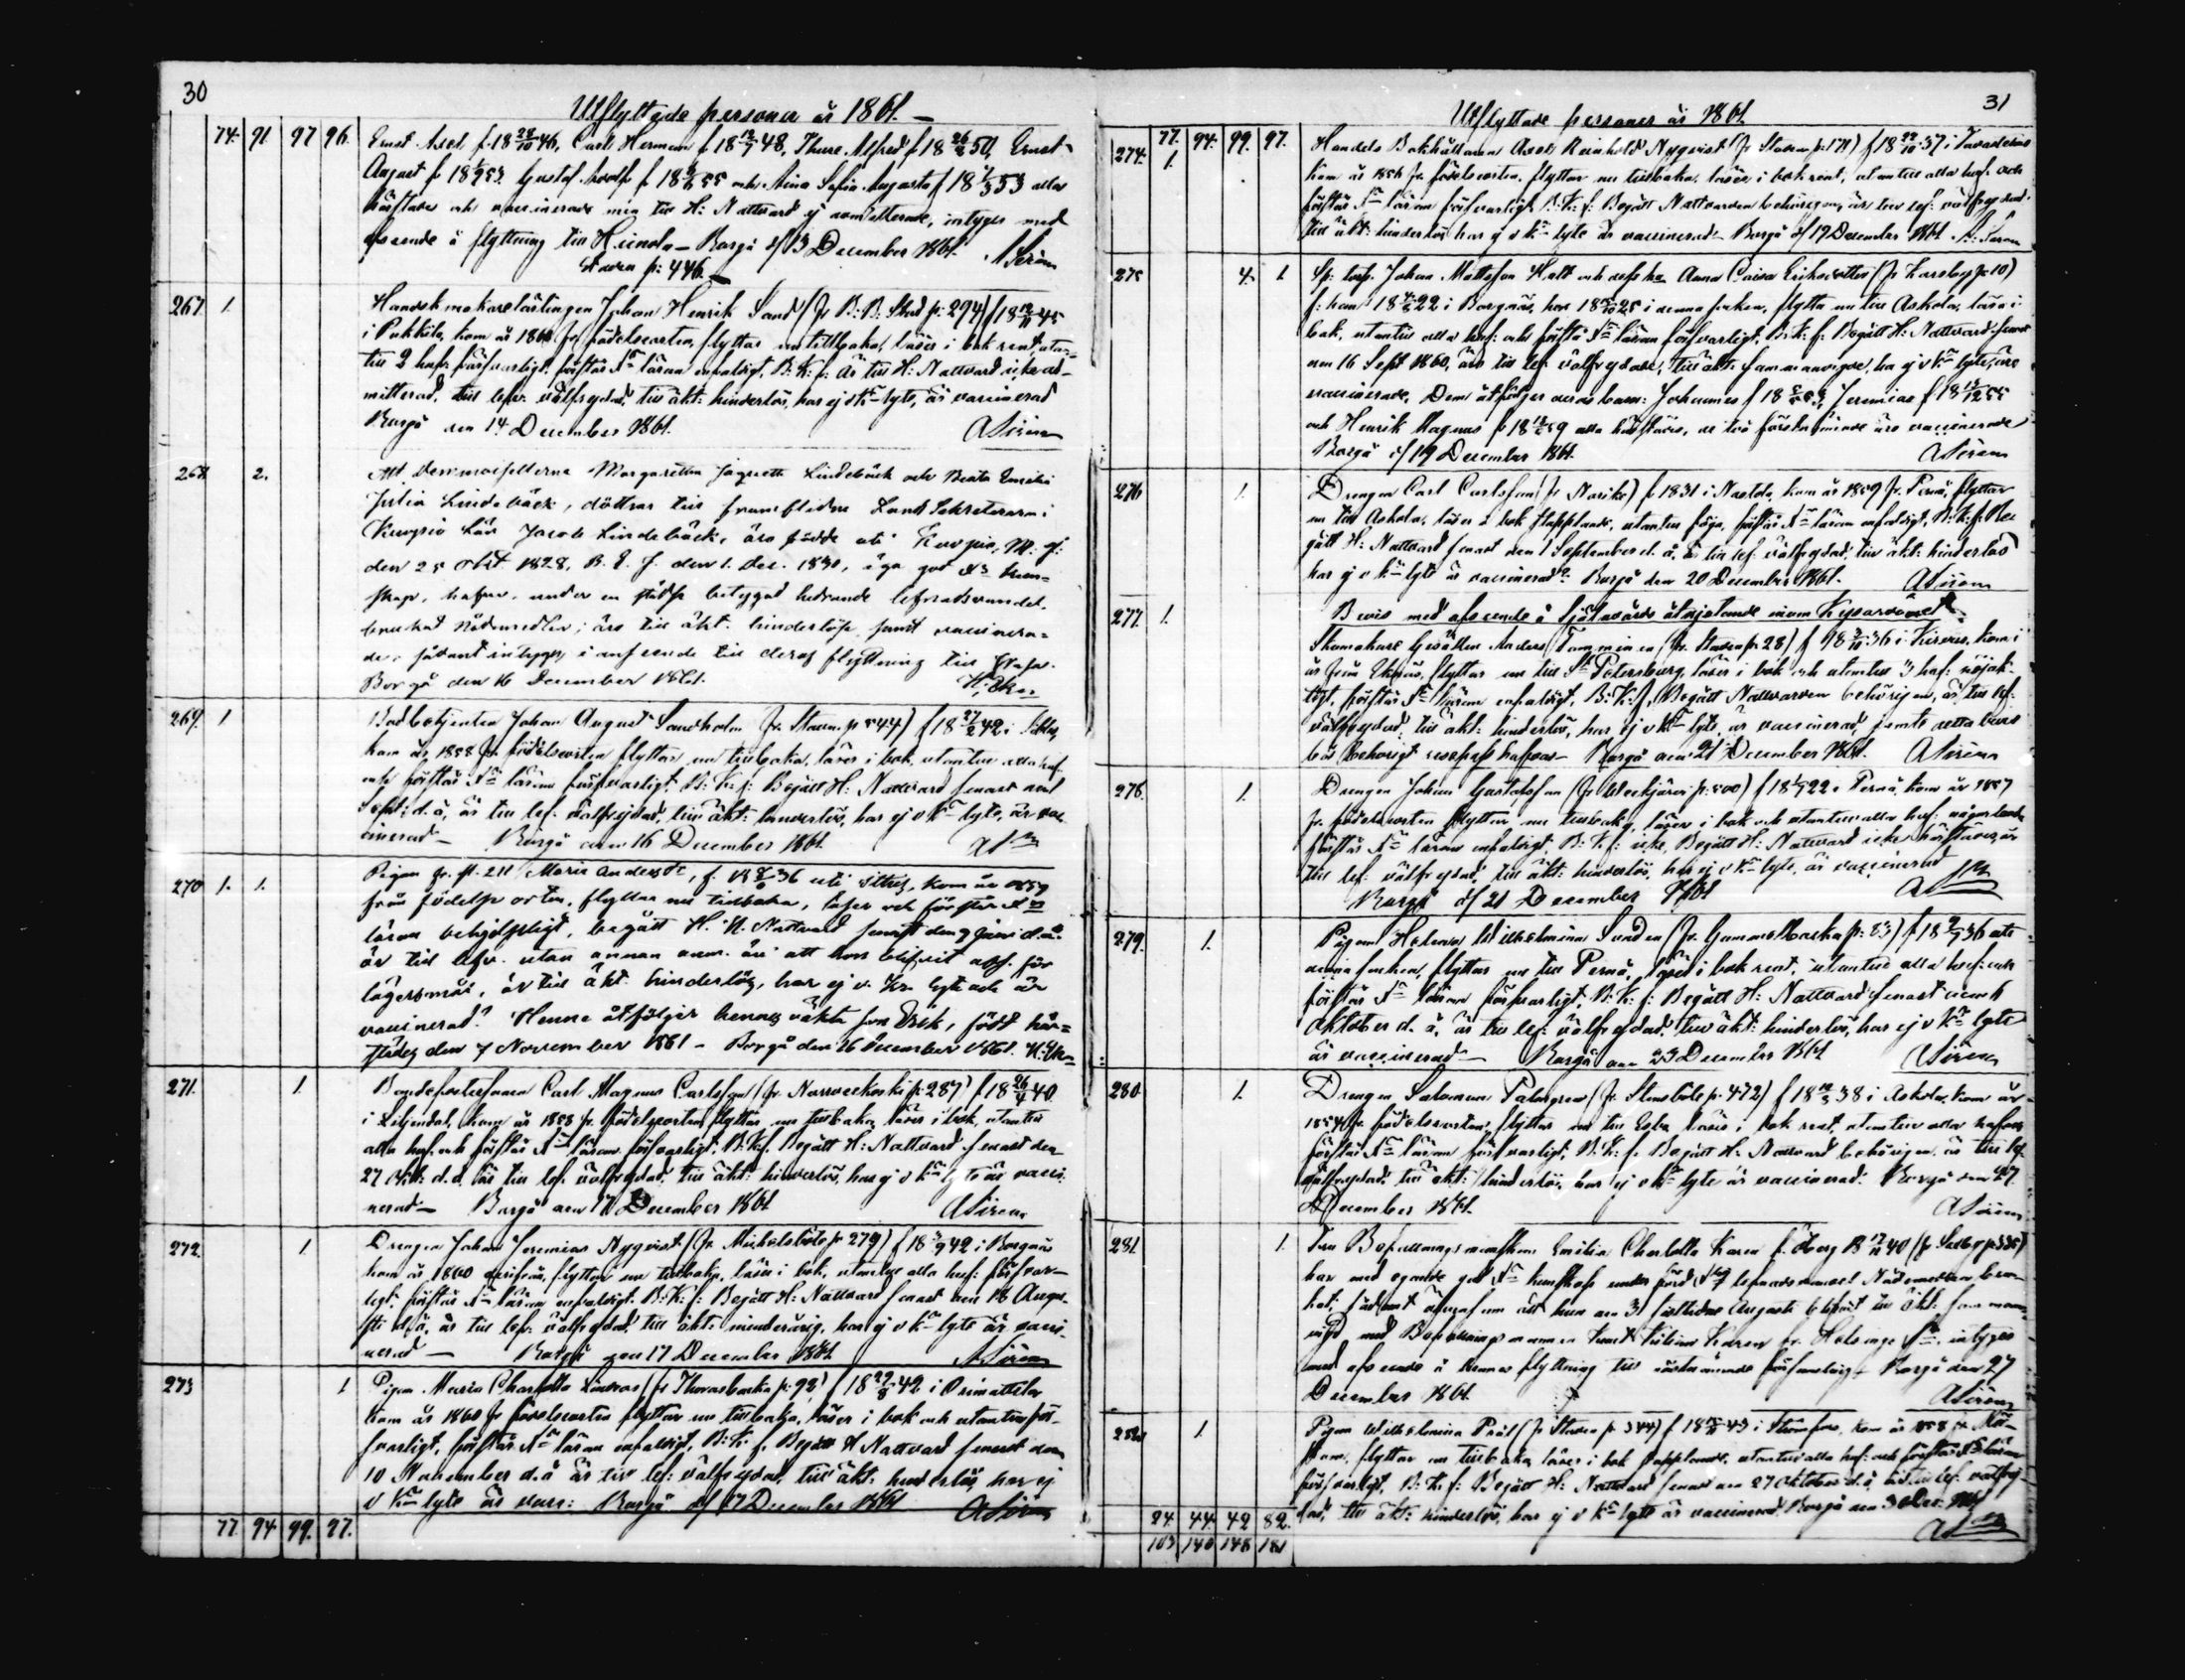 30
Utflyttade personer år 1861. —
74. 91. 97 96.
Ernst Axel f. 18 28/10 46, Carl Herman f 18 12/7 48, Thure Alfred f 18 26/2 50, Ernst
August f 18 53. Gustaf Adolf f 18 55 och Mina Sofia Augusta f 18 53 alla
och vaccinerade men till H: Nattvard ej admitterade, intygas med
afseende å flyttning till Heinola — Borgå d/13 December 1861. ASirén
Staden p: 446.
267. 1.
Handskmakarelärlingen Johan Henrik Sand (fr B: B: Stad p: 294) f 18 12/11 45
i Pukkila, kom år 1860 fr födelseorten, flyttar nu tillbaka, läser i bok rent, utan-
till 2 huf: försvarligt, förstår Xna läran enfaldigt, B: K: f: Är till H: Nattvard icke ad-
mitterad, till lefv: välfrejdad, till äkt: hinderlös, har ej v Kn lyte, är vaccinerad
Borgå den 14 December 1861. ASirén
268. 2.
Att Demoiselterna Margaretha Jaquette Lindebäck och Beata Emilia
Julia Lindebäck, döttrar till framlidne Lands Sekreteraren i
Kuopio Län Jacob Lindebäck, äro födde uti Kuopio, M. J:
den 25 Oktr 1828, B. E. J. den 1. Dec. 1830, äga god Xs kun-
skap, hafva, under en städse betygad hedrande lefnadsvandel,
brukat Nådemedlen; äro till äkt. hinderlösa samt vaccinera-
de, sådant intygas i anseende till deras flyttning till
Borgå den 16 December 1861.
269. 1
Bodbetjenten Johan August Sandholm (fr. Staden p 544) f 18 27/2 42 i Sibbo,
kom år 1858 fr. födelseorten flyttar nu tillbaka, läser i bok, utantill alla huf.
och förstår Xna läran försvarligt, B: K: f: Begått H: Nattvard senast
Sept: d. å, är till lef. välfrejdad, till äkt: hinderlös, har ej v Kn lyte, är vac-
cinerad — Borgå den 16 December 1861. ASn
270 1. 1.
Pigan fr. p. 211 Maria Andersdr, f. 18 36 uti Sibbo, kom år 1859
från födelse orten, flyttar nu tillbaka, läser och förstår Xna
läran behjelpligt, begått H. H. Nattvard senast den 9 Juni d. å.
är till lefv. utan annan anm. än att hon blifvit abs. för
lägersmål, är till äkt. hinderlös, har ej v. Kn lyte och är
vaccinerad. Henne åtföljer hennes oäkta son Erik, född här-
städes den 7 November 1861 — Borgå den 16 December 1861.
271. 1.
Bondesonen Carl Magnus Carlsson (fr. Norrveckoski p: 287) f 18 26/4 40
i Liljendal, kom år 1858 fr. födelseorten, flyttar nu tillbaka, läser i bok, utantill
alla huf. och förstår Xna läran försvarligt, B: K: f. Begått H: Nattvard senast den
27 Okt: d. å. är till lef: välfrejdad, till äkt: hinderlös, har ej v Kn lyte är vacci-
nerad — Borgå den 17 December 1861 ASirén
272. 1.
Drengen Johan Jeremias Nyqvist (fr. Mickelsböle p 279) f 18 3/9 42 i Borgnäs
kom år 1860 derifrån, flyttar nu tillbaka, läser i bok, utantill alla huf: försvar-
ligt, förstår Xna läran enfaldigt. B: K: f: Begått H: Nattvard senast den 18 Augu-
sti d. å, är till lef: välfrejdad, till äkt: minderårig, har ej v Kn lyte är vacci-
nerad — Borgå den 17 December 1861 ASirén
273 1
Pigan Maria Charlotta Lindroos (fr Thorasbacka p: 92) f 18 29/8 42 i Orimattila
kom år 1860 fr födelseorten flyttar nu tillbaka, läser i bok och utantill för-
svarligt, förstår Xna läran enfaldigt, B: K: f. Begått H Nattvard senast den
10 November d. å är till lef: välfrejdad, till äkt: hinderlös, har ej
v Kn lyte är vacc: Borgå d/17 December 1861 ASirén
77. 94 99. 97.
31
Utflyttade personer år 1861.
77. 94. 99. 97.
274. 1.
Handels Bokhållaren Axel Reinhold Nyqvist (fr Staden p: 171) f 18 22/10 37 i Tavastehus
kom år 1856 fr. födelseorten, flyttar nu tillbaka, läser i bok rent, utantill alla huf. och
förstår Xna läran försvarligt, B: K: f: Begått Nattvarden behörigen, är till lef: välfrejdad
till äkt: hinderlös har ej v Kn lyte är vaccinerad — Borgå d/19 December 1861 A: Sirén
275 4. 1
Sp: torp. Johan Mattsson Hatt och dess hu Anna Caisa Eriksdotter (fr Karsby p 10)
f: han 18 22 i Borgnäs, hon 18 25 i denna socken, flytta nu till Askola, läsa i
bok, utantill alla huf: och förstå Xna läran försvarligt, B: K: f: Begått H: Nattvard senast
den 16 Sept 1860, äro till lef: välfrejdade, till äkt: sammanvigde, ha ej v Kn lyte, äro
vaccinerade. Dem åtfölja deras barn: Johannes f 18 53, Jeremias f 18 13/12 55
och Henrik Magnus f 18 59 alla härstädes, de två första äro vaccinerade
Borgå d/19 December 1861. ASirén
276 1.
Drengen Carl Carlsson (fr Norike) f 1831 i Nastola, kom år 1859 fr. Pernå, flyttar
nu till Askola, läser i bok stapplande, utantill föga, förstår Xna läran enfaldigt, B: K: f: Be-
gått H: Nattvard senast den 1 September d. å. är till lef: välfrejdad, till äkt: hinderlös
har ej v Kn lyte är vaccinerad. Borgå den 20 December 1861. ASirén
277. 1.
Bevis med afseende å Själavårds åtnjutande inom Kejsaredömet.
Skomakare Gesällen Anders Tamminen (fr. Staden p 28) f 18 3/10 36 i Kirvus, kom i
år från Ekenäs, flyttar nu till St Petersburg, läser i bok och utantill 3 huf: nöjak-
tigt, förstår Xna läran enfaldigt, B: K: f: Begått Nattvarden behörigen, är till lef:
välfrejdad, till äkt: hinderlös, har ej v Kn lyte, är vaccinerad, jemte detta bevis
bör behörigt respass hafvas — Borgå den 21 December 1861. ASirén
278. 1.
Drengen Johan Gustafsson (fr Weckjärvi p: 500) f 18 22 i Pernå, kom år 1857
fr. födelseorten flyttar nu tillbaka, läser i bok och utantill alla huf: någorlunda
förstår Xna läran enfaldigt. B: K: f: icke, Begått H: Nattvard icke härstädes, är
till lef: välfrejdad, till äkt: hinderlös, har ej v Kn lyte, är vaccinerad
Borgå d/21 December 1861 ASn
279. 1.
Pigan Helena Wilhelmina Sundén (fr. Gammelbacka p: 83) f 18 36 uti
denna socken, flyttar nu till Pernå, läser i bok rent, utantill alla huf: och
förstår Xna läran försvarligt, B: K: f: Begått H: Nattvard senast den 6
Oktober d. å, är till lef: välfrejdad, till äkt: hinderlös, har ej v Kn lyte
är vaccinerad — Borgå den 23 December 1861 ASirén
280. 1.
Drengen Salomon Palmgren (fr. Stensböle p: 472) f 18 38 i Askola, kom år
1854 fr. födelseorten, flyttar nu till Esbo läser i bok rent, utantill alla hufven
förstår Xna läran försvarligt, B: K: f. Begått H: Nattvard behörigen, är till lef:
välfrejdad, till äkt: hinderlös, har ej v Kn lyte är vaccinerad: Borgå den 27
December 1861. ASirén
281 1.
Fru Befallningsmanskan Emilia Charlotta Karen f. Öberg 18 17/11 40
har med egande god Xna kunskap under förd Xlig lefnadsvandel Nådemedlen bru-
kat, sådant att hon den 31 Augusti blifvit till äkt: samman-
vigd med Befallningsmannen Karen fr. Helsinge Sn, intygas
med afseende å hennes flyttning till nästnämnde församling — Borgå den 27
December 1861. ASirén
282 1.
Pigan Wilhelmina Präl (fr Staden p 344) f 18 43 i Strömfors, kom år 1858 fr
flyttar nu tillbaka, läser i bok stapplande, utantill alla huf: och förstår Xna läran
försvarligt, B: K: f: Begått H: Nattvard senast den 27 Oktober d. å, är till lef. välfrej-
dad, till äkt: hinderlös, har ej v Kn lyte är vaccinerad. Borgå den 30 Dec: 1861
ASn
24. 44. 42 82.
103 140 148 181